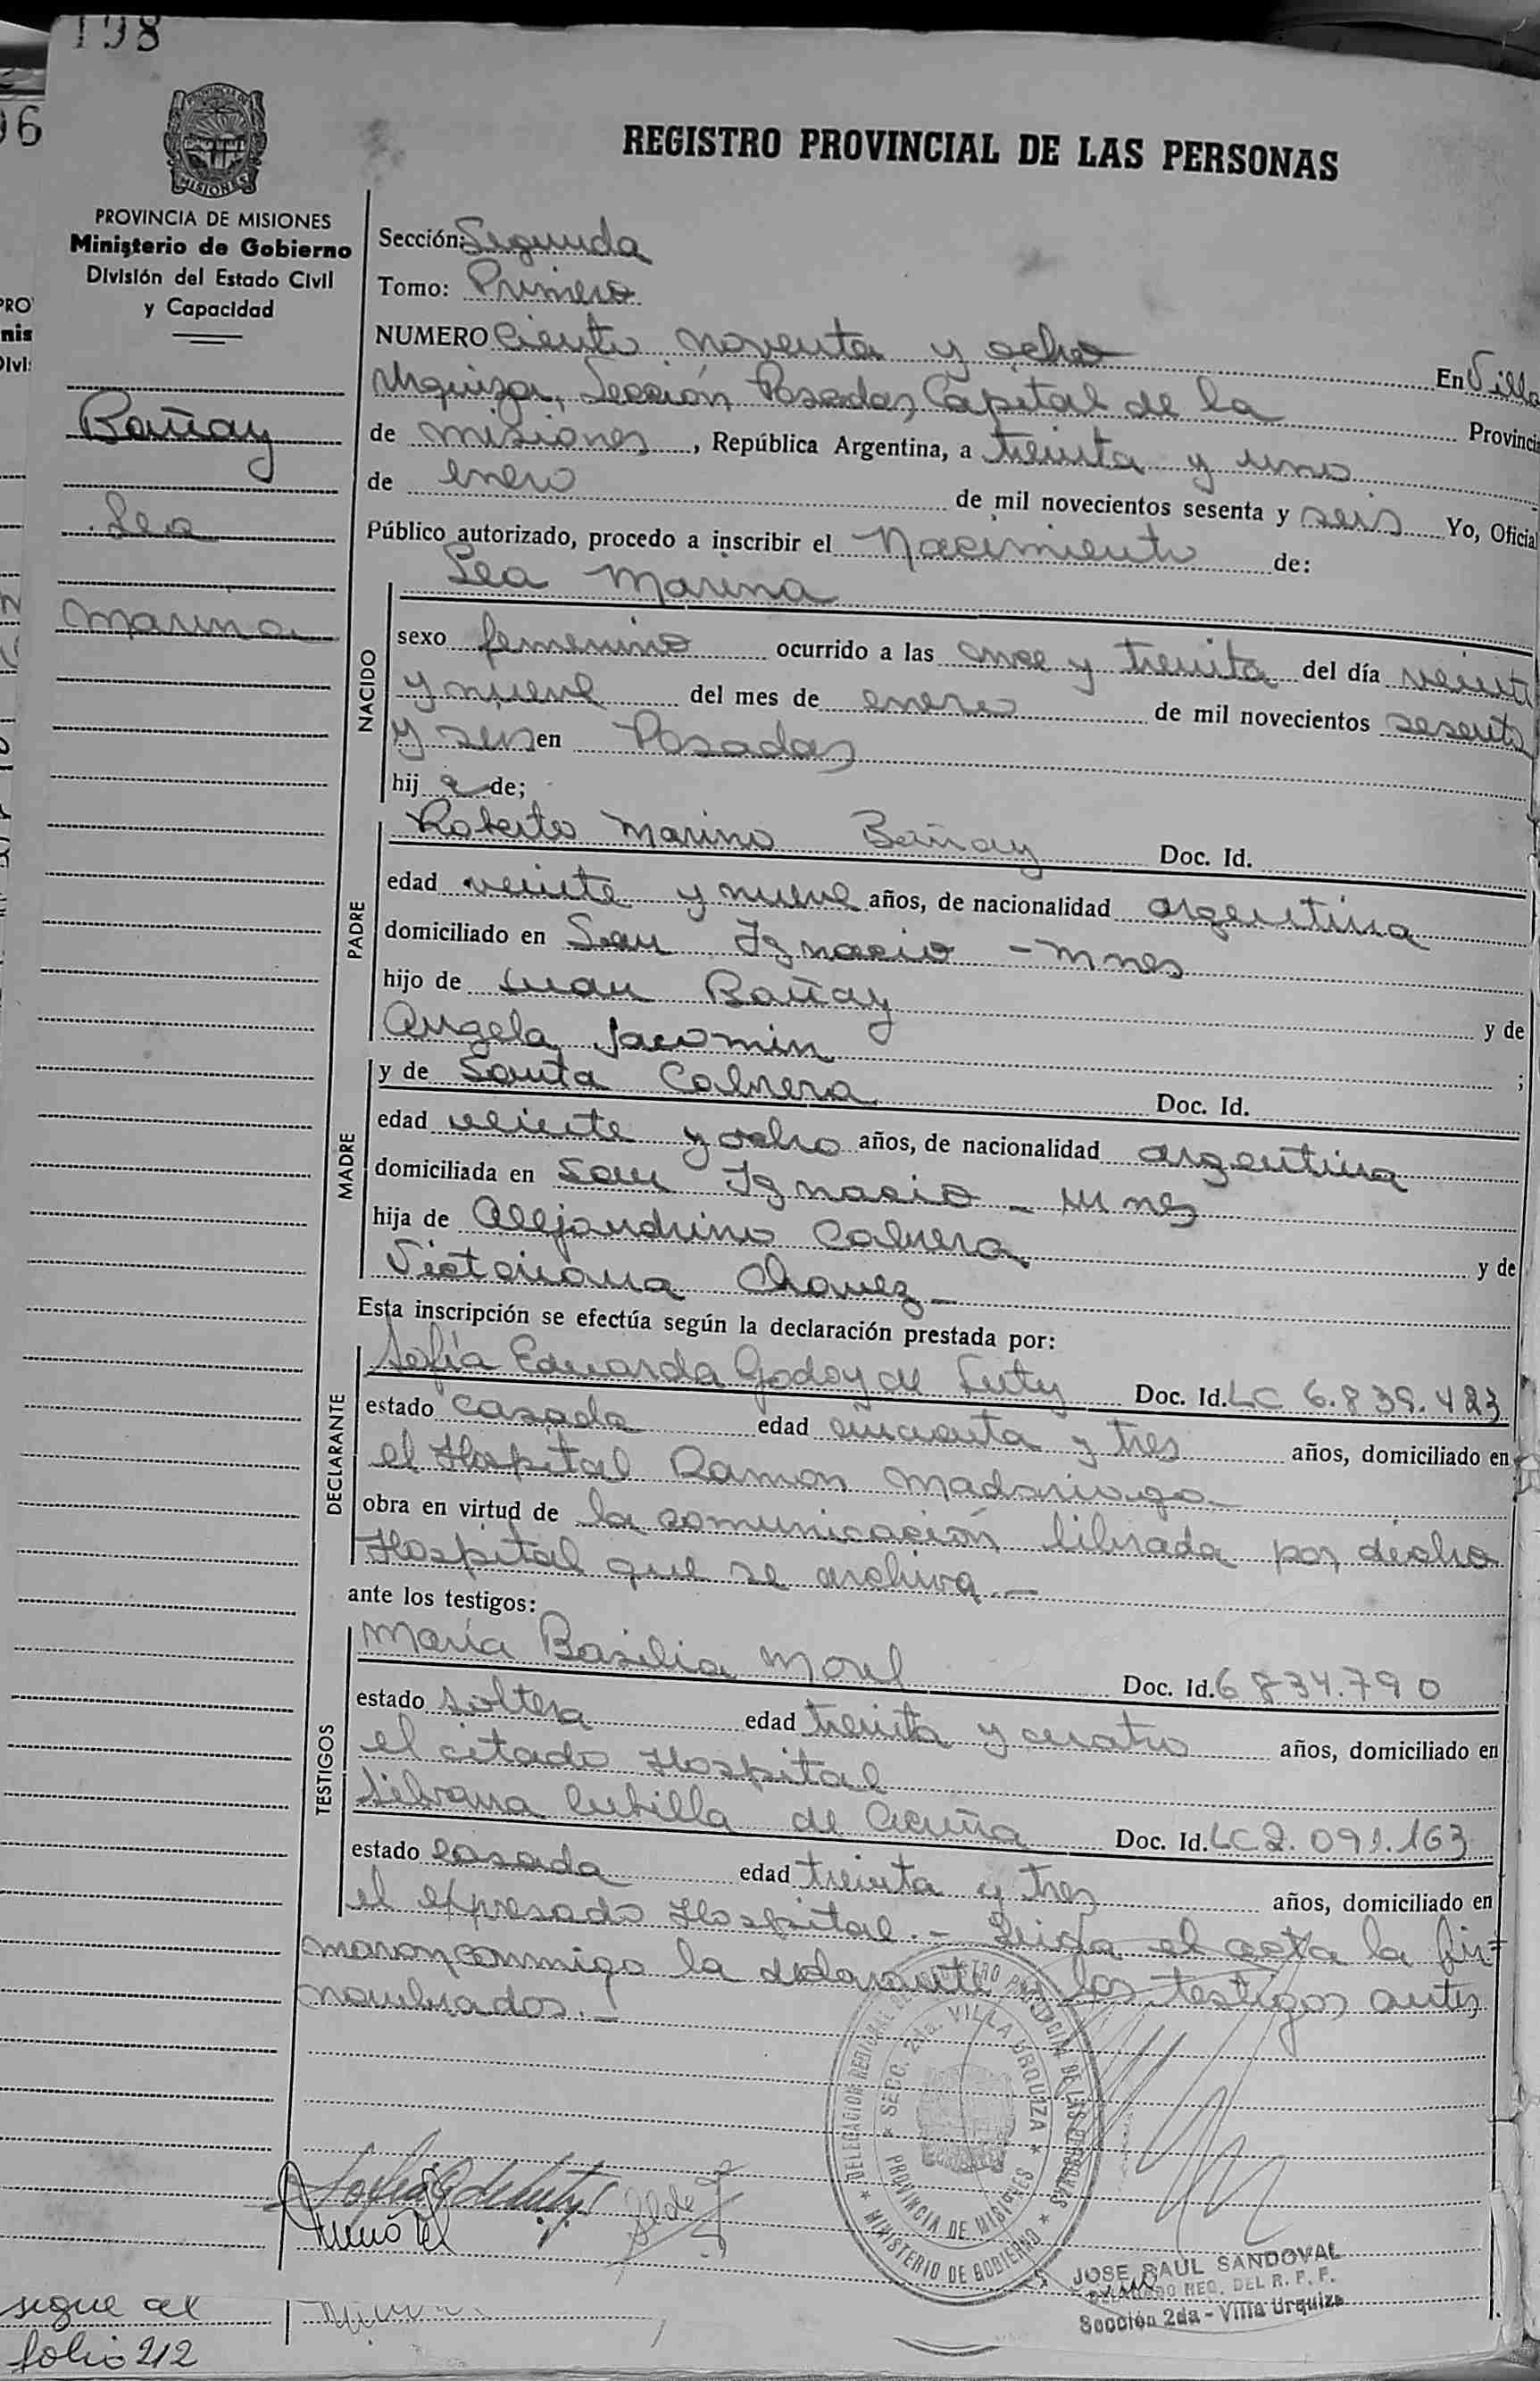 198
96
PROVINCIA DE MISIONES
Ministerio de Gobierno
División del Estado Civil
y Capacidad
Bañay
Lea
Marina
REGISTRO PROVINCIAL DE LAS PERSONAS
Sección: Segunda
Tomo: Primero
NUMERO Ciento noventa y ocho En Villa
Urquiza, Sección Posadas, Capital de la Provincia
de misiones, República Argentina, a treinta y uno
de enero de mil novecientos sesenta y seis Yo, Oficial
Público autorizado, procedo a inscribir el Nacimiento de:
Lea Marina
NACIDO
sexo femenino ocurrido a las once y treinta del día veinti
y nueve del mes de enero de mil novecientos sesenta
y seis en Posadas
hij a de;
PADRE
Roberto Marino Bañay Doc. Id.
edad veinte y nueve años, de nacionalidad argentina
domiciliado en San Ignacio - Mnes
hijo de Juan Bañay y de
Angela Jacomin ;
MADRE
y de Santa Cabrera Doc. Id.
edad veinte y ocho años, de nacionalidad argentina
domiciliada en San Ignacio - Mnes
hija de Alejandrino Cabrera y de
Victoriana Chavez -
Esta inscripción se efectúa según la declaración prestada por:
DECLARANTE
Sofía Eduarda Godoy de Luty Doc. Id. LC 6.839.423
estado casada edad cincuenta y tres años, domiciliado en
el Hospital Ramon Madariaga
obra en virtud de la comunicación librada por dicho
Hospital que se archiva. -
ante los testigos:
TESTIGOS
María Basilia Morel Doc. Id. 6834.790
estado soltera edad treinta y cuatro años, domiciliado en
el citado Hospital
Silvana Cubilla de Acuña Doc. Id. LC 2.091.163
estado casada edad treinta y tres años, domiciliado en
el expresado Hospital. - Leida el acta la fir=
maron conmigo la declarante y los testigos antes
nombrados. -
DELEGACION REGIONAL DEL REGISTRO PROVINCIAL DE LAS PERSONAS
* MINISTERIO DE GOBIERNO *
* SECC. 2da. VILLA URQUIZA *
PROVINCIA DE MISIONES
JOSE RAUL SANDOVAL
DELEGADO REG. DEL R. P. P.
Sección 2da - Villa Urquiza
sigue al
folio 212